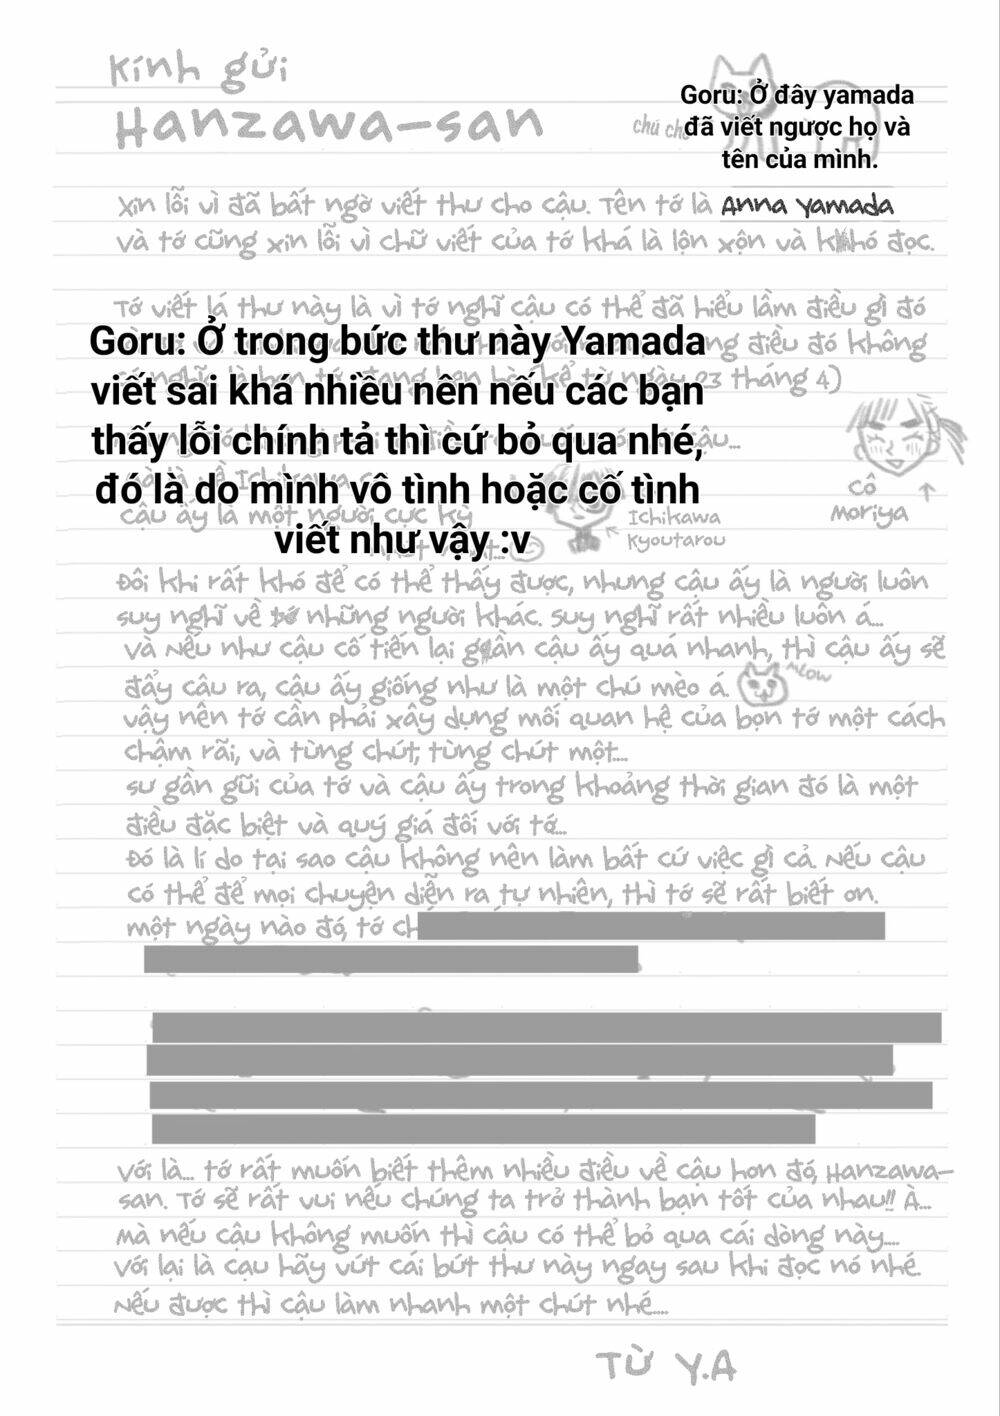 Kính gửi
Hanzawa-san
chú ch
Goru: Ở đây yamada
đã viết ngược họ và
tên của mình.
Xin lỗi vì đã bất ngờ viết thư cho cậu. Tên tớ là Anna Yamada
và tớ cũng xin lỗi vì chữ viết của tớ khá là lộn xộn và khó đọc.
Tớ viết lá thư này là vì tớ nghĩ cậu có thể đã hiểu lầm điều gì đó
điều đó không
kể từ ngày 23 tháng 4)
Goru: Ở trong bức thư này Yamada
viết sai khá nhiều nên nếu các bạn
thấy lỗi chính tả thì cứ bỏ qua nhé,
đó là do mình vô tình hoặc cố tình
viết như vậy :v
cậu ấy là một người cực kỳ
Ichikawa
Kyoutarou
Cô
Moriya
Đôi khi rất khó để có thể thấy được, nhưng cậu ấy là người luôn
suy nghĩ về những người khác. Suy nghĩ rất nhiều luôn á...
và Nếu như cậu cố tiến lại gần cậu ấy quá nhanh, thì cậu ấy sẽ
đẩy cậu ra, cậu ấy giống như là một chú mèo á.
meow
vậy nên tớ cần phải xây dựng mối quan hệ của bọn tớ một cách
chậm rãi, và từng chút, từng chút một....
sư gần gũi của tớ và cậu ấy trong khoảng thời gian đó là một
điều đặc biệt và quý giá đối với tớ...
Đó là lí do tại sao cậu không nên làm bất cứ việc gì cả. Nếu cậu
có thể để mọi chuyện diễn ra tự nhiên, thì tớ sẽ rất biết ơn.
một ngày nào đó, tớ ch
Với là... tớ rất muốn biết thêm nhiều điều về cậu hơn đó, Hanzawa-
san. Tớ sẽ rất vui nếu chúng ta trở thành bạn tốt của nhau!! À...
Mà nếu cậu không muốn thì cậu có thể bỏ qua cái dòng này....
Với lại là cạu hãy vứt cái bứt thư này ngay sau khi đọc nó nhé.
Nếu được thì cậu làm nhanh một chút nhé....
Từ Y.A